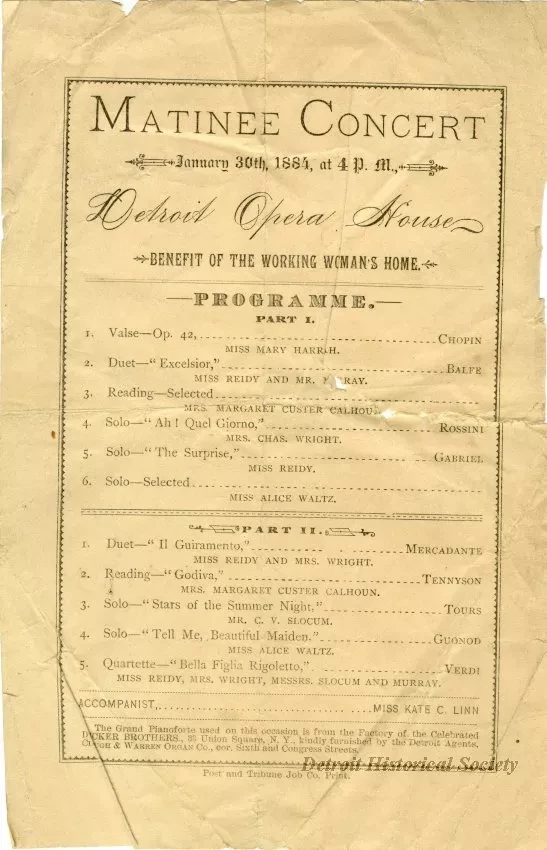 MATINEE CONCERT
January 30th, 1884, at 4 P. M.,
Detroit Opera House
BENEFIT OF THE WORKING WOMAN'S HOME.
PROGRAMME.
PART I.
1. Valse—Op. 42, CHOPIN
MISS MARY HARRAH.
2. Duet—"Excelsior," BALFE
MISS REIDY AND MR. RAY.
3. Reading—Selected
MRS. MARGARET CUSTER CALHOUN
4. Solo—"Ah! Quel Giorno," ROSSINI
MRS. CHAS. WRIGHT.
5. Solo—"The Surprise," GABRIEL
MISS REIDY.
6. Solo—Selected
MISS ALICE WALTZ.
PART II.
1. Duet—"Il Guiramento," MERCADANTE
MISS REIDY AND MRS. WRIGHT.
2. Reading—"Godiva," TENNYSON
MRS. MARGARET CUSTER CALHOUN.
3. Solo—"Stars of the Summer Night," TOURS
MR. C. V. SLOCUM.
4. Solo—"Tell Me, Beautiful Maiden." GUONOD
MISS ALICE WALTZ.
5. Quartette—"Bella Figlia Rigoletto," VERDI
MISS REIDY, MRS. WRIGHT, MESSRS. SLOCUM AND MURRAY.
ACCOMPANIST, MISS KATE C. LINN
The Grand Pianoforte used on this occasion is from the Factory of the Celebrated
DECKER BROTHERS, 33 Union Square, N. Y., kindly furnished by the Detroit Agents,
CLOUGH & WARREN ORGAN CO., cor. Sixth and Congress Streets.
Detroit Historical Society
Post and Tribune Job Co. Print.